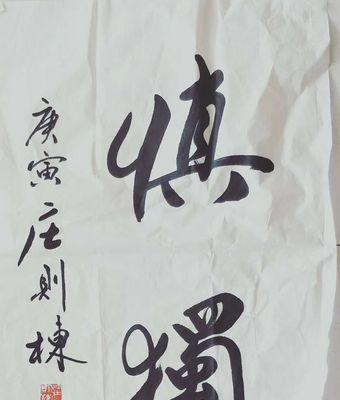 慎獨
庚寅庄則棟